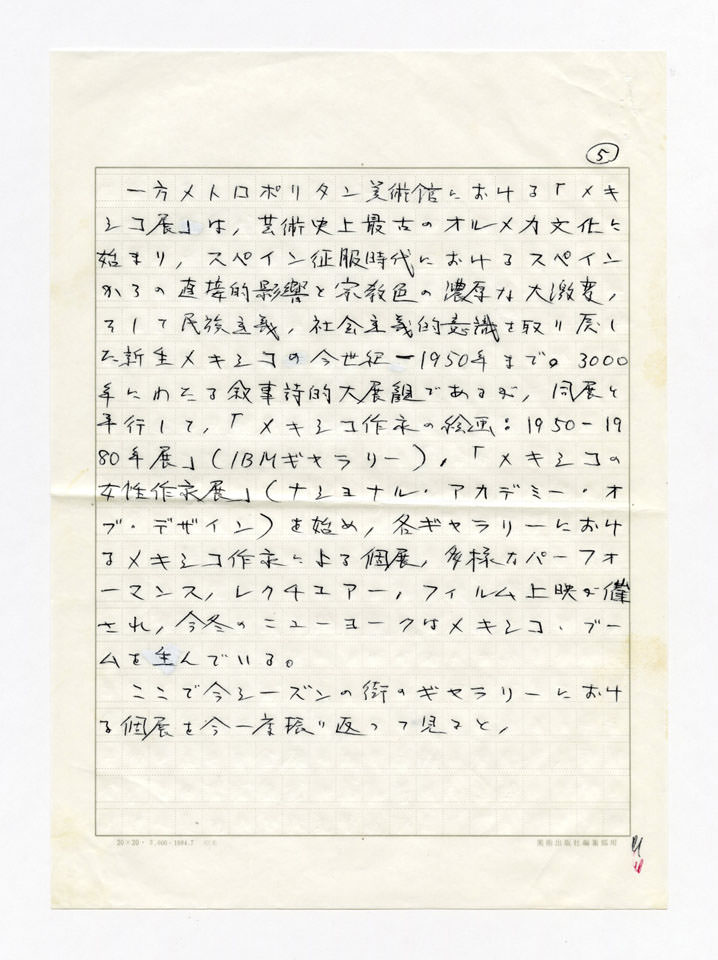 5
一方メトロポリタン美術館における「メキ
シコ展」は，芸術史上最古のオルメカ文化に
始まり，スペイン征服時代におけるスペイン
からの直接的影響と宗教色の濃厚な大激変，
そして民族主義，社会主義的意識を取り戻し
た新生メキシコの今世紀ー1950年まで。3000
年にわたる叙事詩的大展観であるが，同展と
平行して，「メキシコ作家の絵画：1950-19
80年展」（IBMギャラリー），「メキシコの
女性作家展」（ナショナル・アカデミー・オ
ブ・デザイン）を始め，各ギャラリーにおけ
るメキシコ作家による個展，多様なパーフォ
ーマンス，レクチュアー，フィルム上映が催
され，今冬のニューヨークはメキシコ・ブー
ムを生んでいる。
ここで今シーズンの街のギャラリーにおけ
る個展を今一度振り返って見ると，
20×20・ 1984.7
美術出版社編集部用